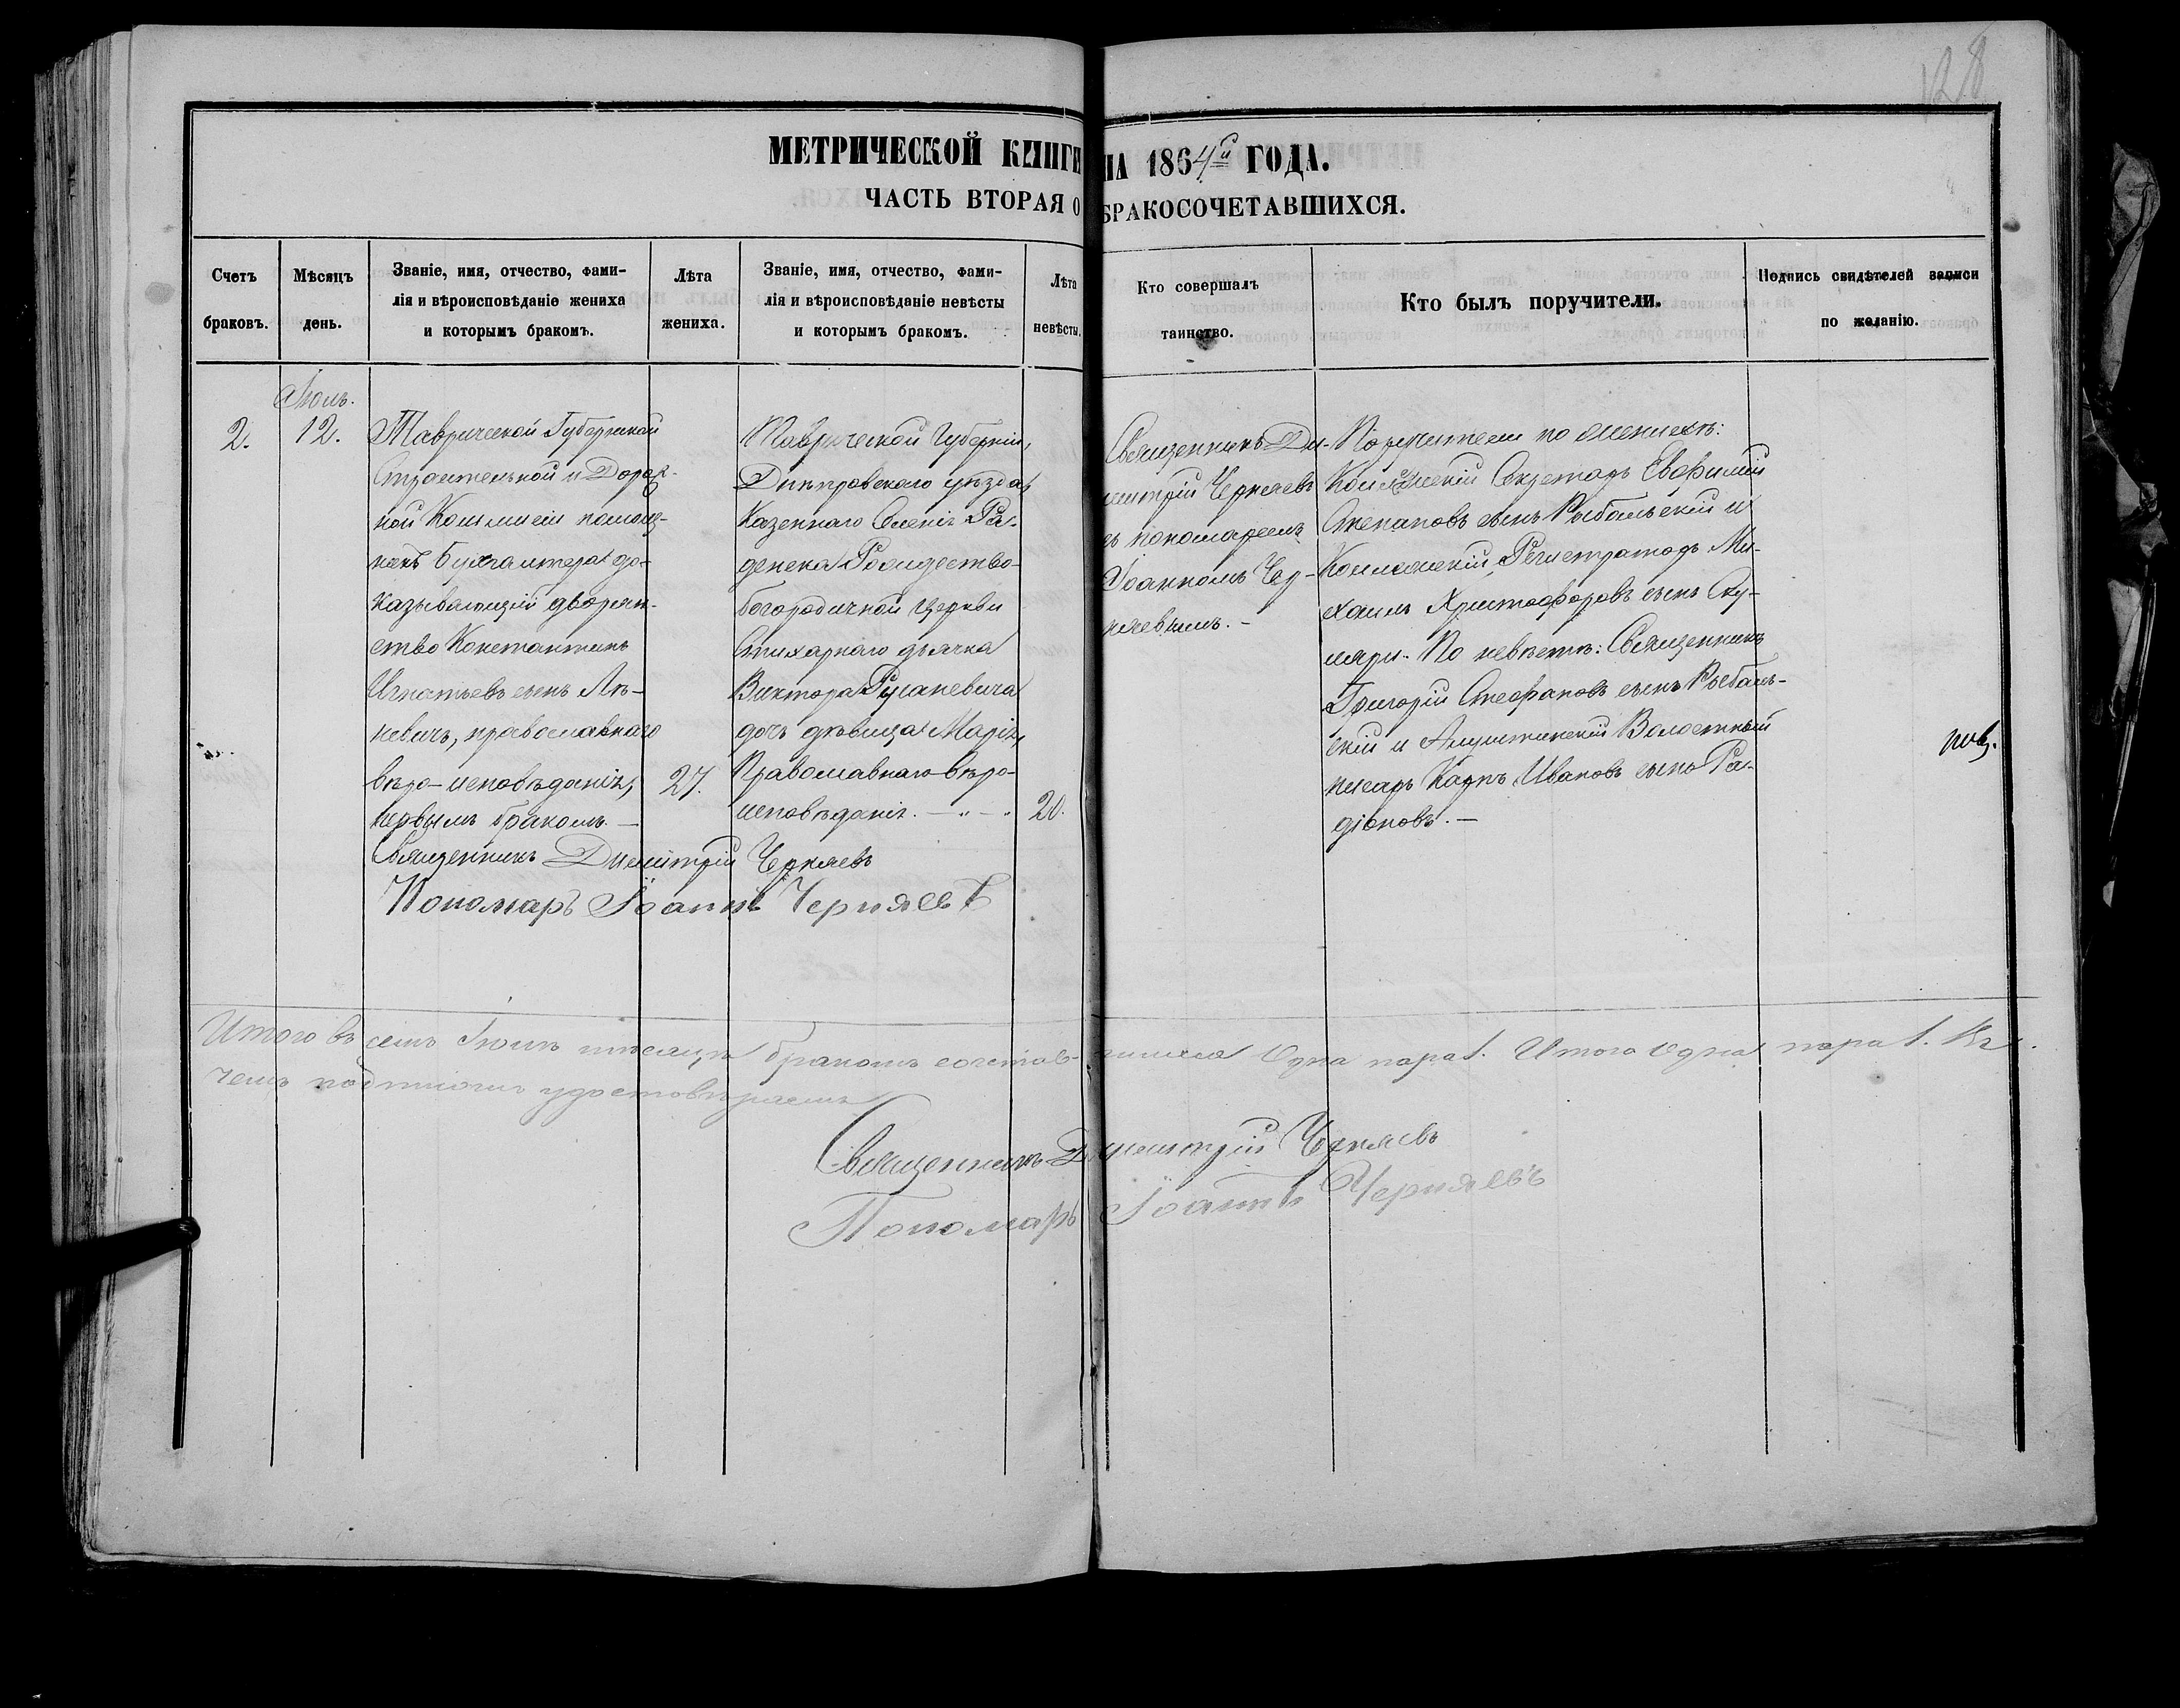 128
МЕТРИЧЕСКОЙ КНИГИ НА 1864й ГОДА.
ЧАСТЬ ВТОРАЯ О БРАКОСОЧЕТАВШИХСЯ.
Счетъ
браковъ.
Мѣсяцъ
день.
Званіе, имя, отчество, фами-
лія и вѣроисповѣданіе жениха
и которымъ бракомъ.
Лѣта
жениха.
Званіе, имя, отчество, фами-
лія и вѣроисповѣданіе невѣсты
и которымъ бракомъ.
Лѣта
невѣсты.
Кто совершалъ
таинство.
Кто былъ поручители.
Подпись свидѣтелей записи
по желанію.
2.
12.
Таврической Губернской
Строительной и Дорож-
ной Коммисіи помощ-
никъ бухгалтера до-
казывающій дворян-
ство Константинъ
Игнатьевъ сынъ
невичъ, православнаго
вѣро-исповѣданія,
первымъ бракомъ. —
27.
Таврической Губерніи,
Днѣпровскаго уѣзда
Казеннаго Селенія Ра-
денска Рождество-
богородичной Церкви
Стихарнаго дьячка
Виктора
дочь дѣвица Марія,
Православнаго вѣро-
исповѣданія. — „ — „
20.
Священникъ Ди-
митрій Черняевъ
съ пономаремъ
Іоанномъ Чер-
няевымъ. —
Поручители по женихѣ:
Коллежскій Секретарь Евфимій
Степановъ сынъ Рыбальскій и
Коллежскій Регистраторъ Ми-
хаилъ Христофоровъ сынъ Ску-
мари. По невѣстѣ: Священникъ
Григорій Стефановъ сынъ Рыбаль-
скій и Алуштинскій Волостный
писарь Карпъ Ивановъ сынъ Ра-
діоновъ. —
Священникъ Димитрій Черняевъ
Пономарь Іоаннъ Черняевъ
Итого въ семъ мѣсяцѣ бракомъ сочетавшихся Одна пара 1. Итого Одна пара 1. Въ
чемъ подписомъ удостовѣряемъ
Священникъ Димитрій Черняевъ
Пономарь Іоаннъ Черняевъ